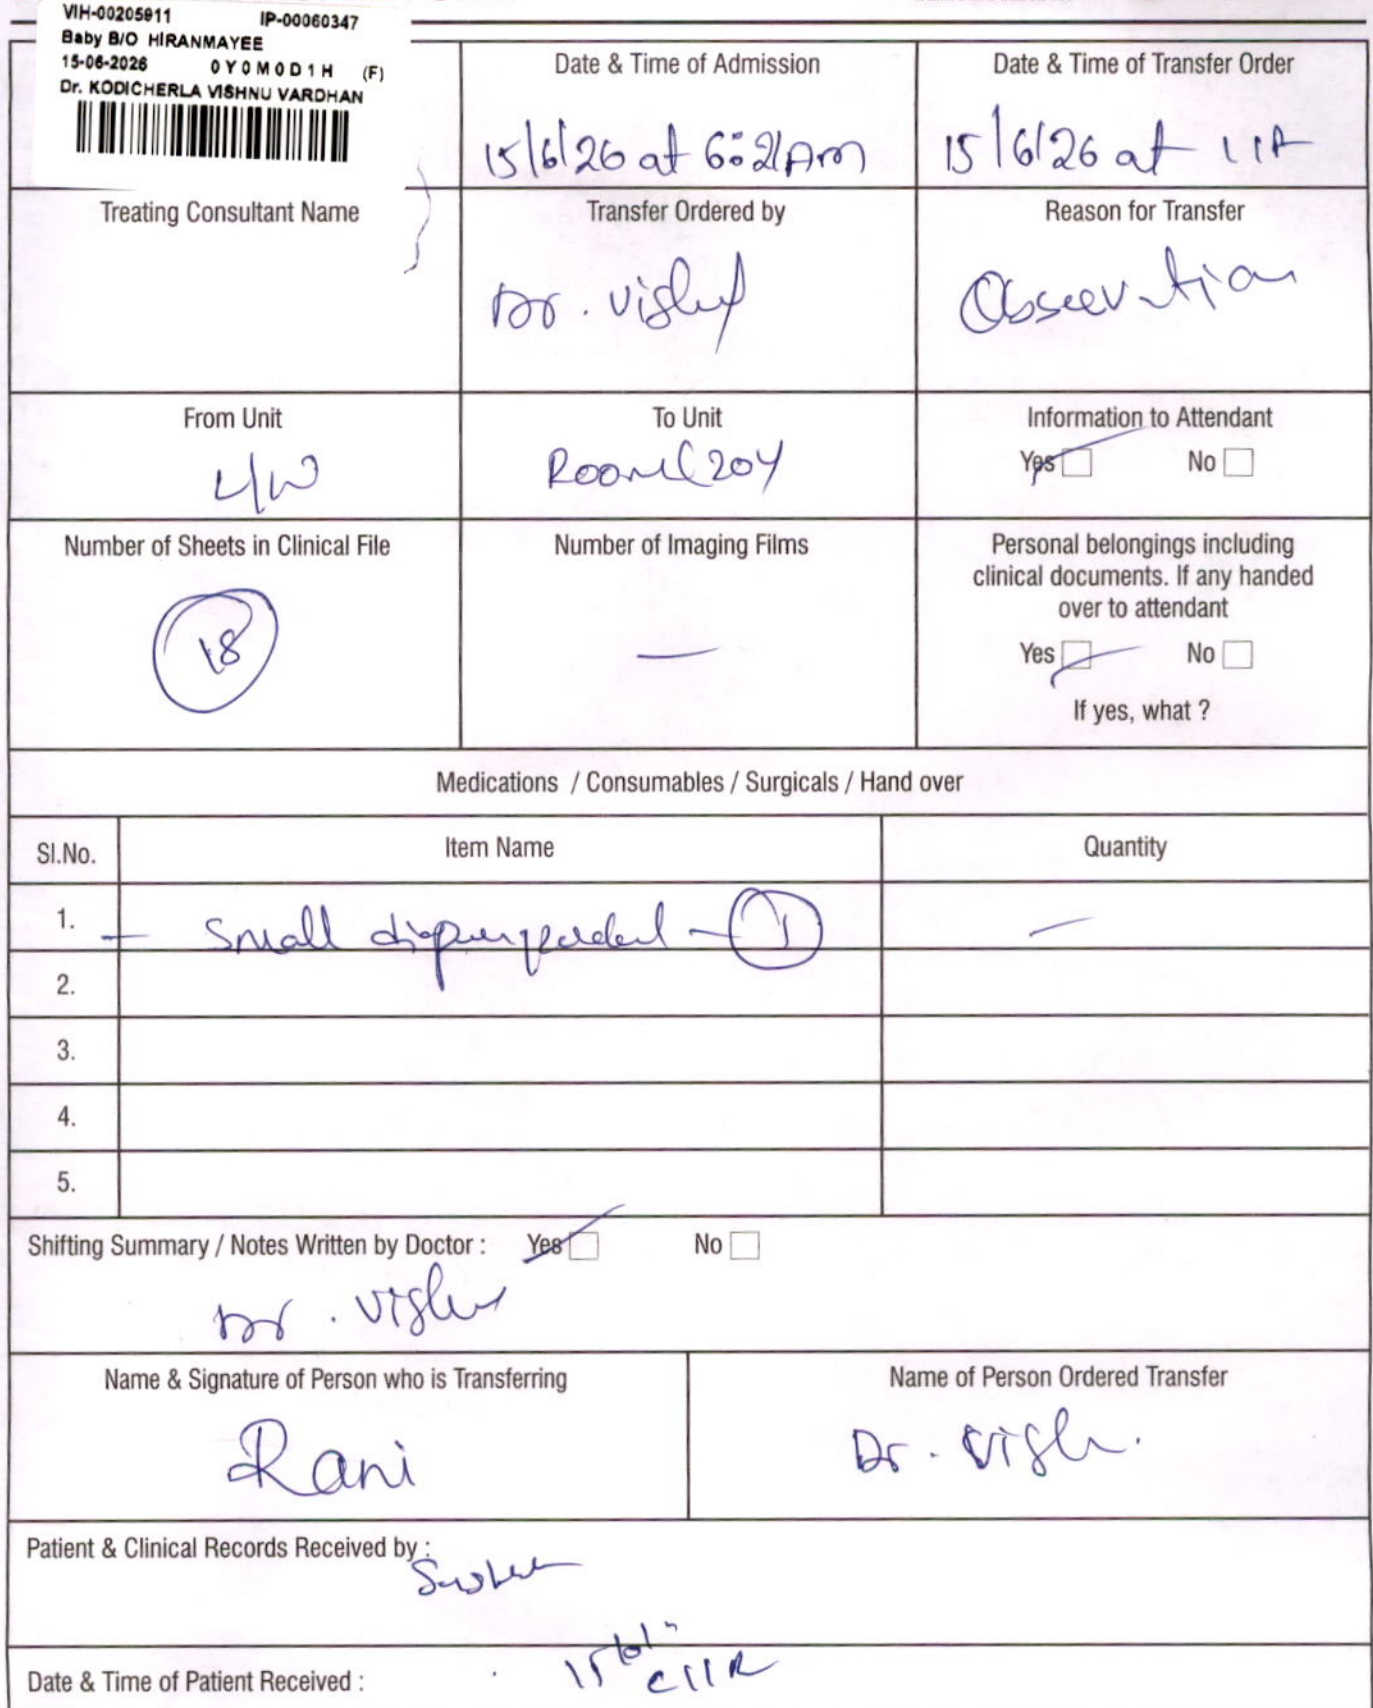 VIH-00205911 IP-00060347
Baby B/O HIRANMAYEE
15-06-2026 0Y0M0D1H (F)
Dr. KODICHERLA VISHNU VARDHAN
Date & Time of Admission
15/6/26 at 6:21AM
Date & Time of Transfer Order
15/6/26 at 11A
Treating Consultant Name
Transfer Ordered by
Dr. Vishnu
Reason for Transfer
Observation
From Unit
L/W
To Unit
Room 204
Information to Attendant
Yes No
Number of Sheets in Clinical File
18
Number of Imaging Films
—
Personal belongings including
clinical documents. If any handed
over to attendant
Yes No
If yes, what ?
Medications / Consumables / Surgicals / Hand over
Sl.No. Item Name Quantity
1. - Small - 1 —
2.
3.
4.
5.
Shifting Summary / Notes Written by Doctor : Yes No
Dr. Vishnu
Name & Signature of Person who is Transferring
Rani
Name of Person Ordered Transfer
Dr. Vish.
Patient & Clinical Records Received by :
Date & Time of Patient Received :